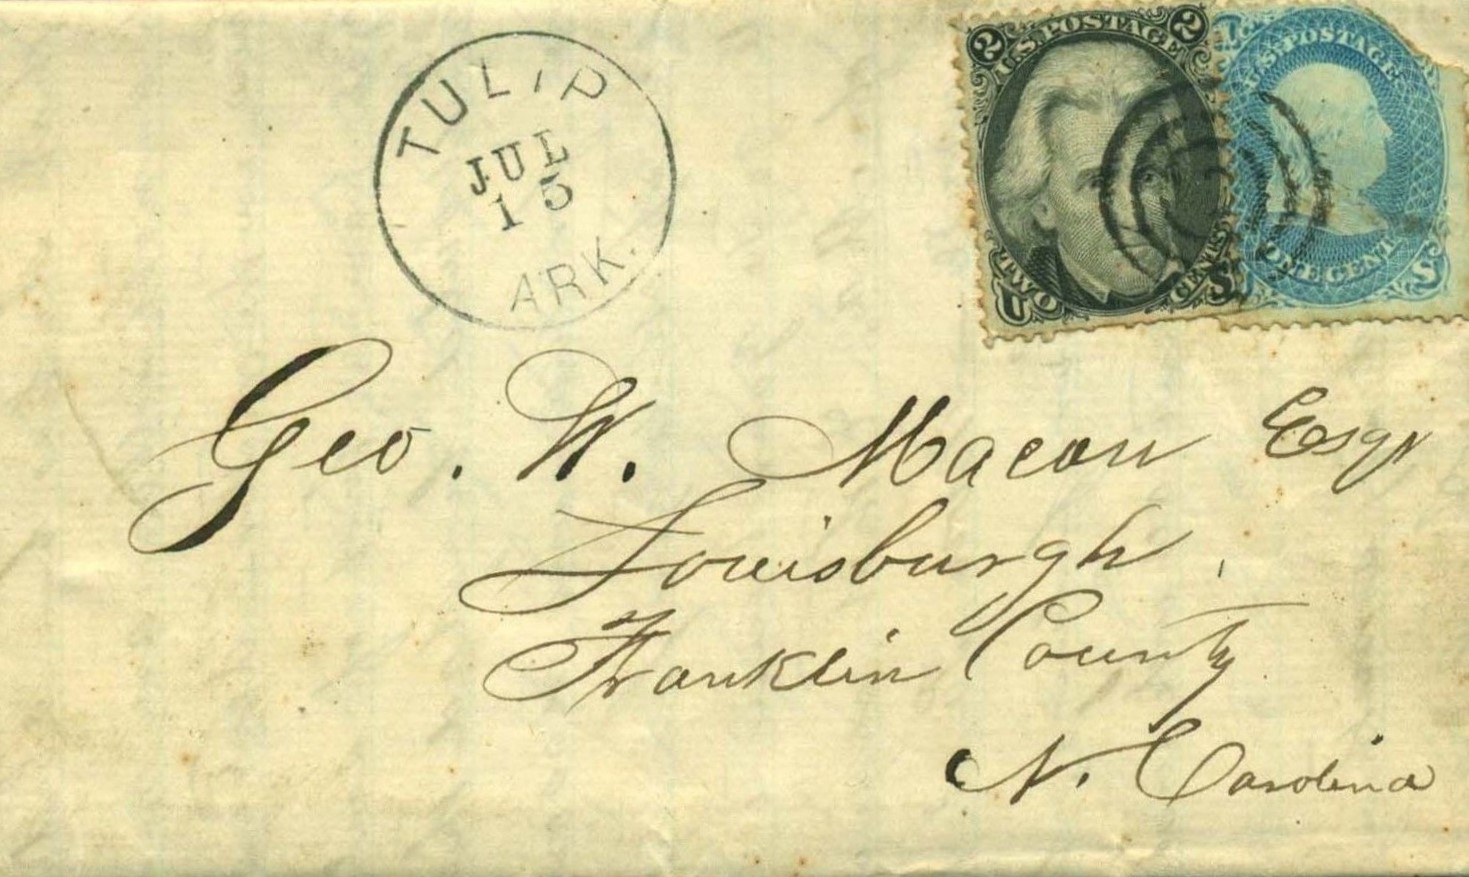 TULIP
JUL
15
ARK.
2 U.S. POSTAGE 2
TWO CENTS
U S
U.S. POSTAGE
ONE CENT
S
Geo. W. Macon Esqr
Louisburgh,
Franklin County
N. Carolina